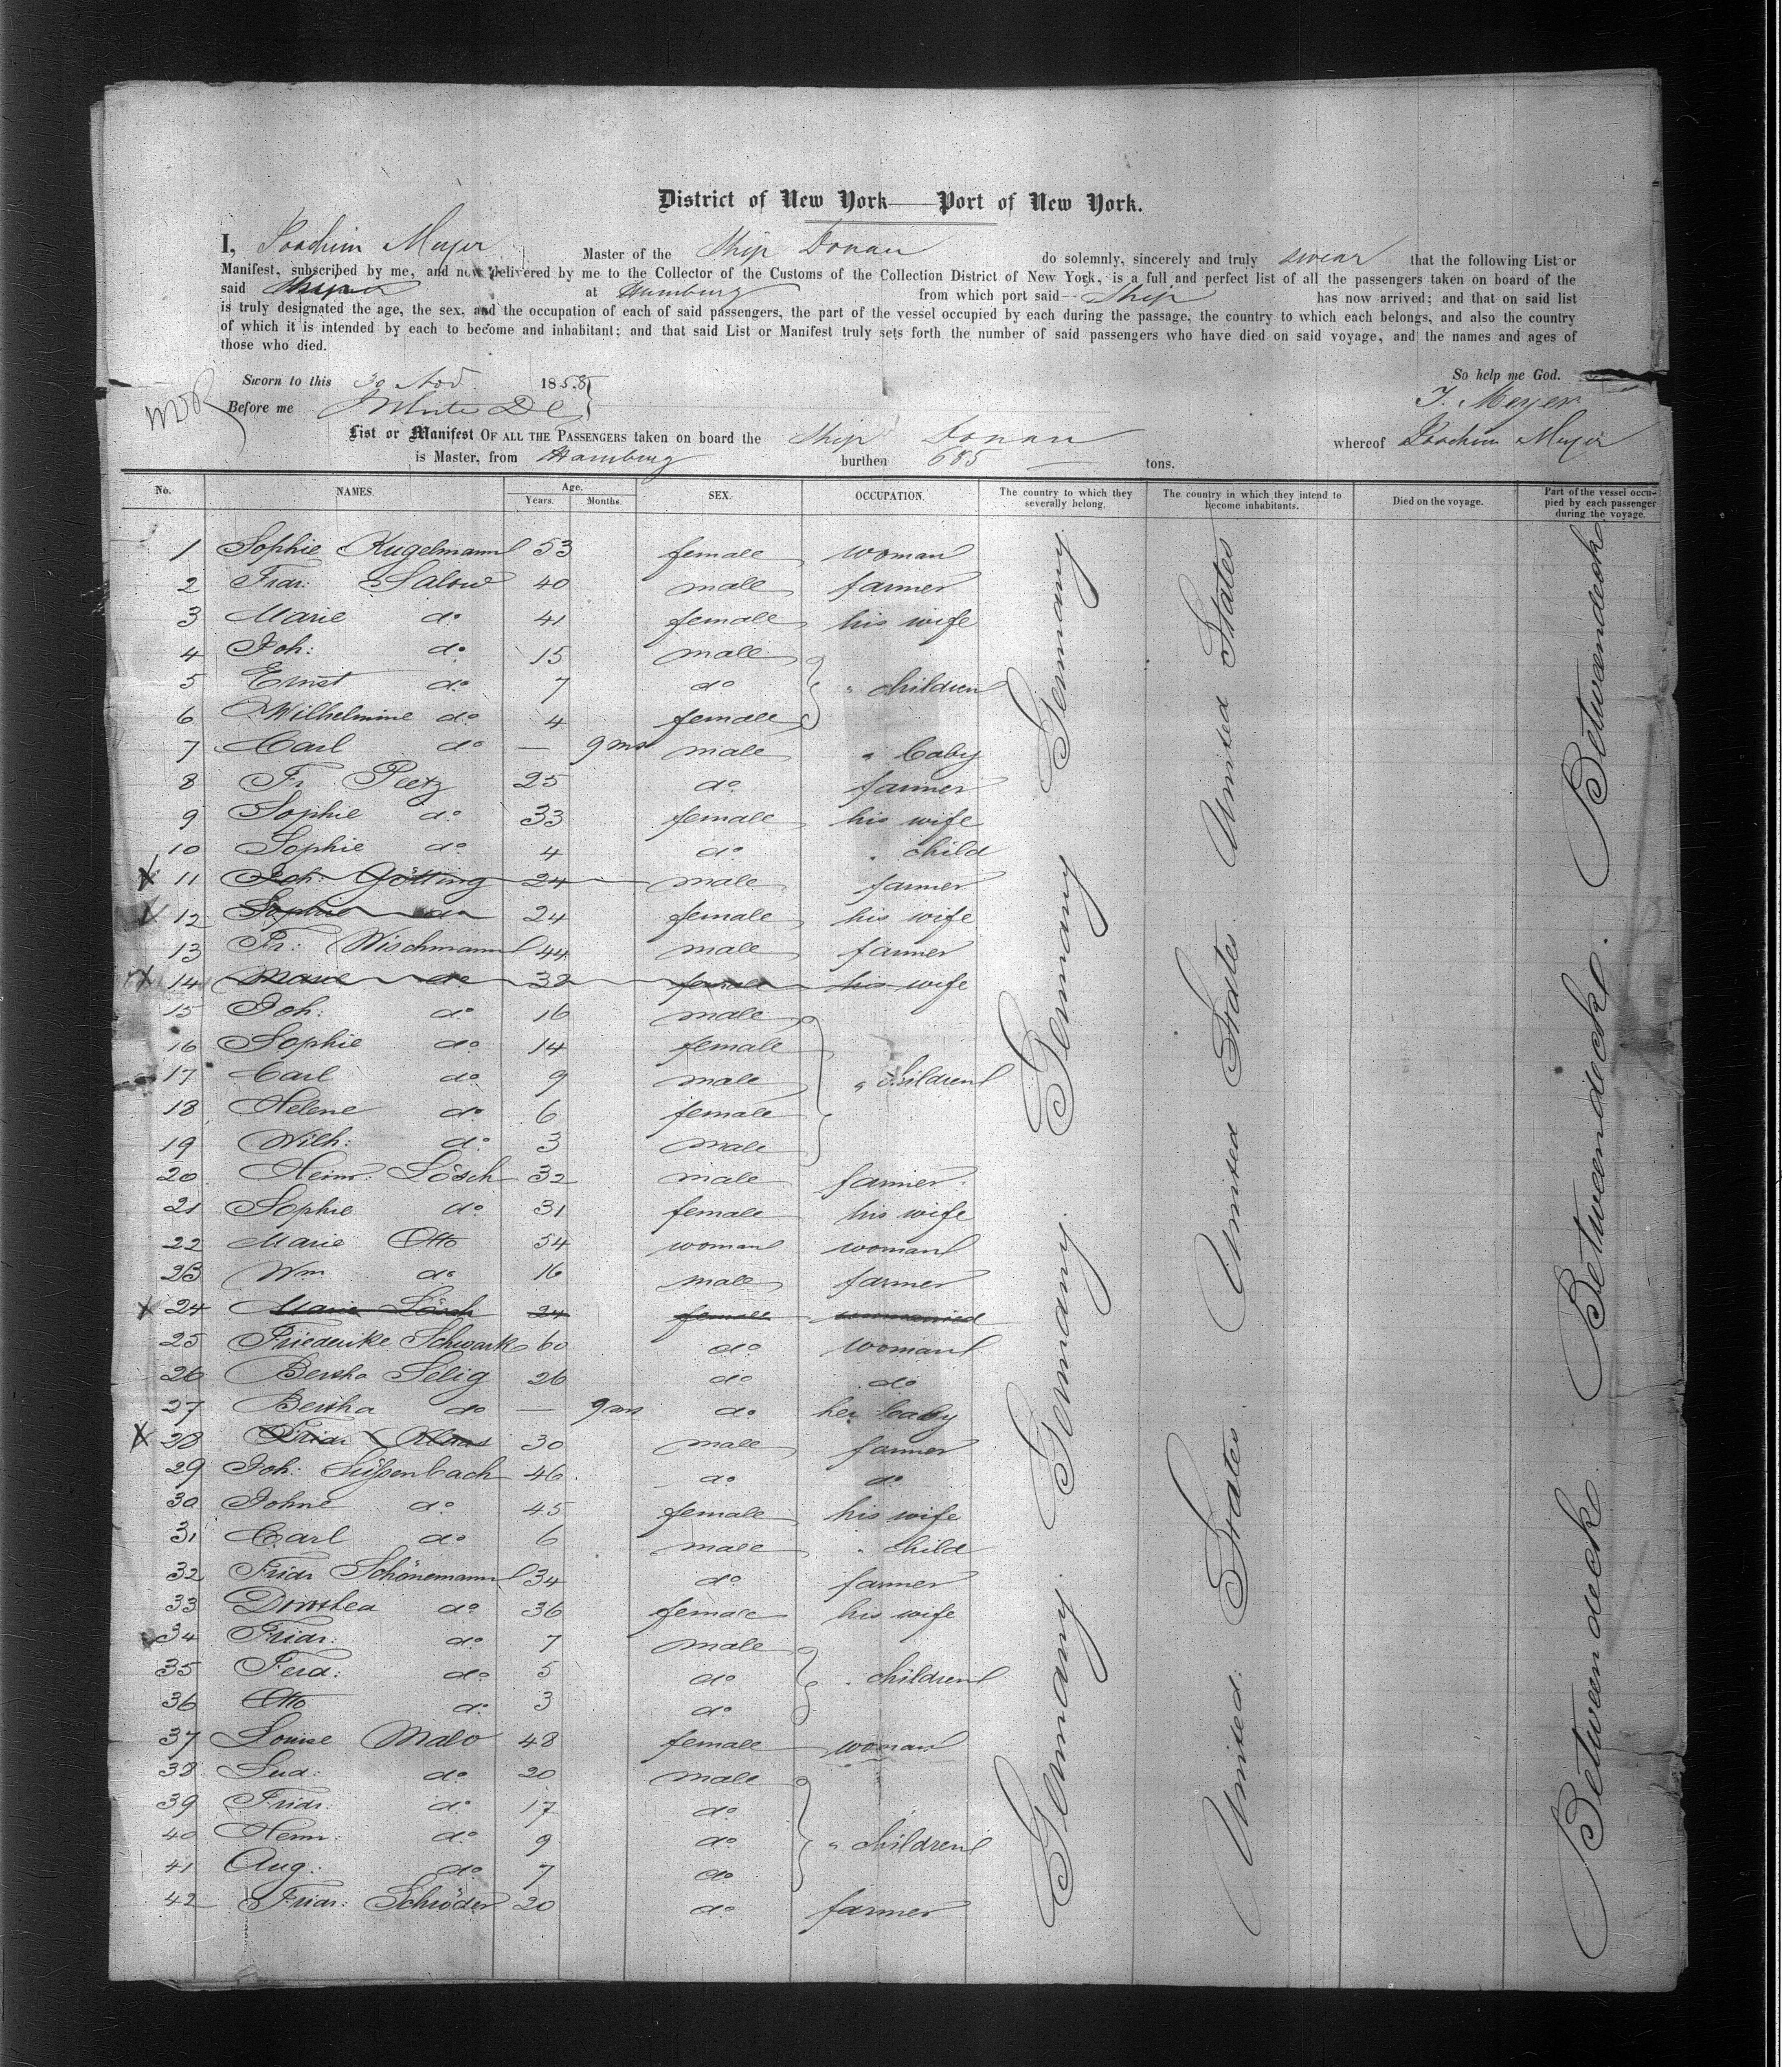 District of New York — Port of New York.
I, Joachim Meyer Master of the Ship Donau do solemnly, sincerely and truly swear that the following List or
Manifest, subscribed by me, and now delivered by me to the Collector of the Customs of the Collection District of New York, is a full and perfect list of all the passengers taken on board of the
said at Hamburg from which port said Ship has now arrived; and that on said list
is truly designated the age, the sex, and the occupation of each of said passengers, the part of the vessel occupied by each during the passage, the country to which each belongs, and also the country
of which it is intended by each to become and inhabitant; and that said List or Manifest truly sets forth the number of said passengers who have died on said voyage, and the names and ages of
those who died.
Sworn to this 30 Nov 1858 So help me God.
Before me J. Meyer
List or Manifest OF ALL THE PASSENGERS taken on board the Ship Donau whereof Joachim Meyer
is Master, from Hamburg burthen 685 tons.
No. NAMES. Age. Years. Months. SEX. OCCUPATION. The country to which they severally belong. The country in which they intend to become inhabitants. Died on the voyage. Part of the vessel occupied by each passenger during the voyage.
1 Sophie Kugelmann 53 female woman
2 Fridr: Salow 40 male farmer
3 Marie do 41 female his wife
4 Joh: do 15 male
5 Ernst do 7 do " children
6 Wilhelmine do 4 female
7 Carl do — 9 ms male " baby
8 Fr Peetz 25 do farmer
9 Sophie do 33 female his wife
10 Sophie do 4 do " child
X 11 Joh: Götting 24 male farmer
X 12 Sophie do 24 female his wife
13 Fr: Wischmann 44 male farmer
X 14 Marie do 32 female his wife
15 Joh: do 16 male
16 Sophie do 14 female
17 Carl do 9 male " children
18 Helene do 6 female
19 Wilh: do 3 male
20 Heinr. Lösch 32 male farmer
21 Sophie do 31 female his wife
22 Marie Otto 54 woman woman
23 Wm do 16 male farmer
X 24 Marie Lösch 24 female unmarried
25 Friederike Schwark 60 do woman
26 Bertha Selig 26 do do
27 Bertha do — 9 ms do her baby
X 28 Fridr Klaas 30 male farmer
29 Joh: Süßenbach 46 do do
30 Johne do 45 female his wife
31 Carl do 6 male " child
32 Fridr Schönemann 34 do farmer
33 Dorothea do 36 female his wife
34 Fridr: do 7 male
35 Ferd: do 5 do " children
36 Otto do 3 do
37 Louise Malo 48 female woman
38 Lud: do 20 male
39 Fridr: do 17 do
40 Heinr: do 9 do " children
41 Aug: do 7 do
42 Fridr: Schröder 20 do farmer
Germany. Germany. Germany. Germany Germany
United States United States United States United States
Betweendecke. Betweendecke. Betweendecke. Betweendecke